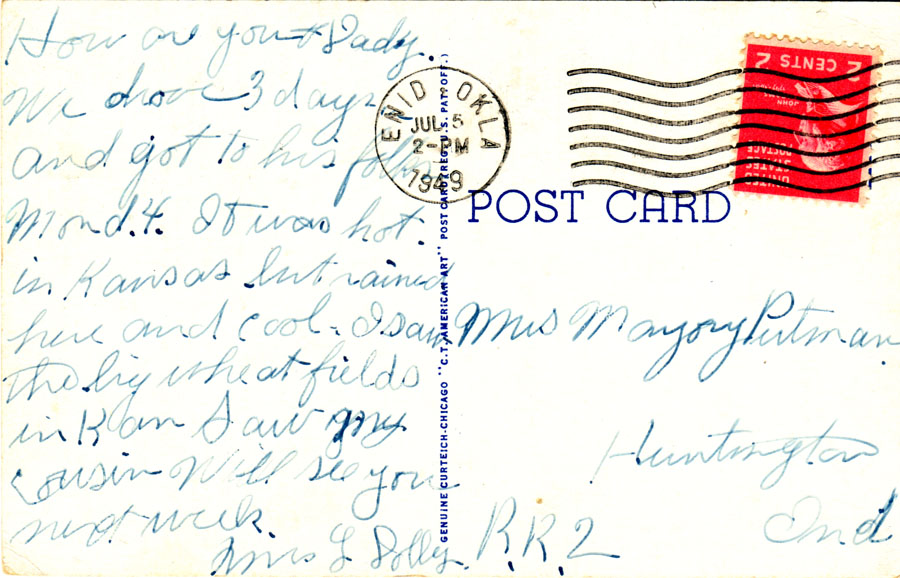 How are you & Dady.
We drove 3 days
and got to his folks
Mond. 4. It was hot
in Kansas but rained
here and cool. I saw
the big wheat fields
in Kan Saw my
cousin Will see you
next week.
Mrs L
ENID OKLA
JUL 5
2-PM
1949
2 CENTS 2
JOHN ADAMS
UNITED
STATES
POSTAGE
POST CARD
GENUINE CURTEICH-CHICAGO "C.T. AMERICAN ART" POST CARD (REG. U.S. PAT. OFF.)
Miss Marjory Putman
Huntington
R.R.2 Ind